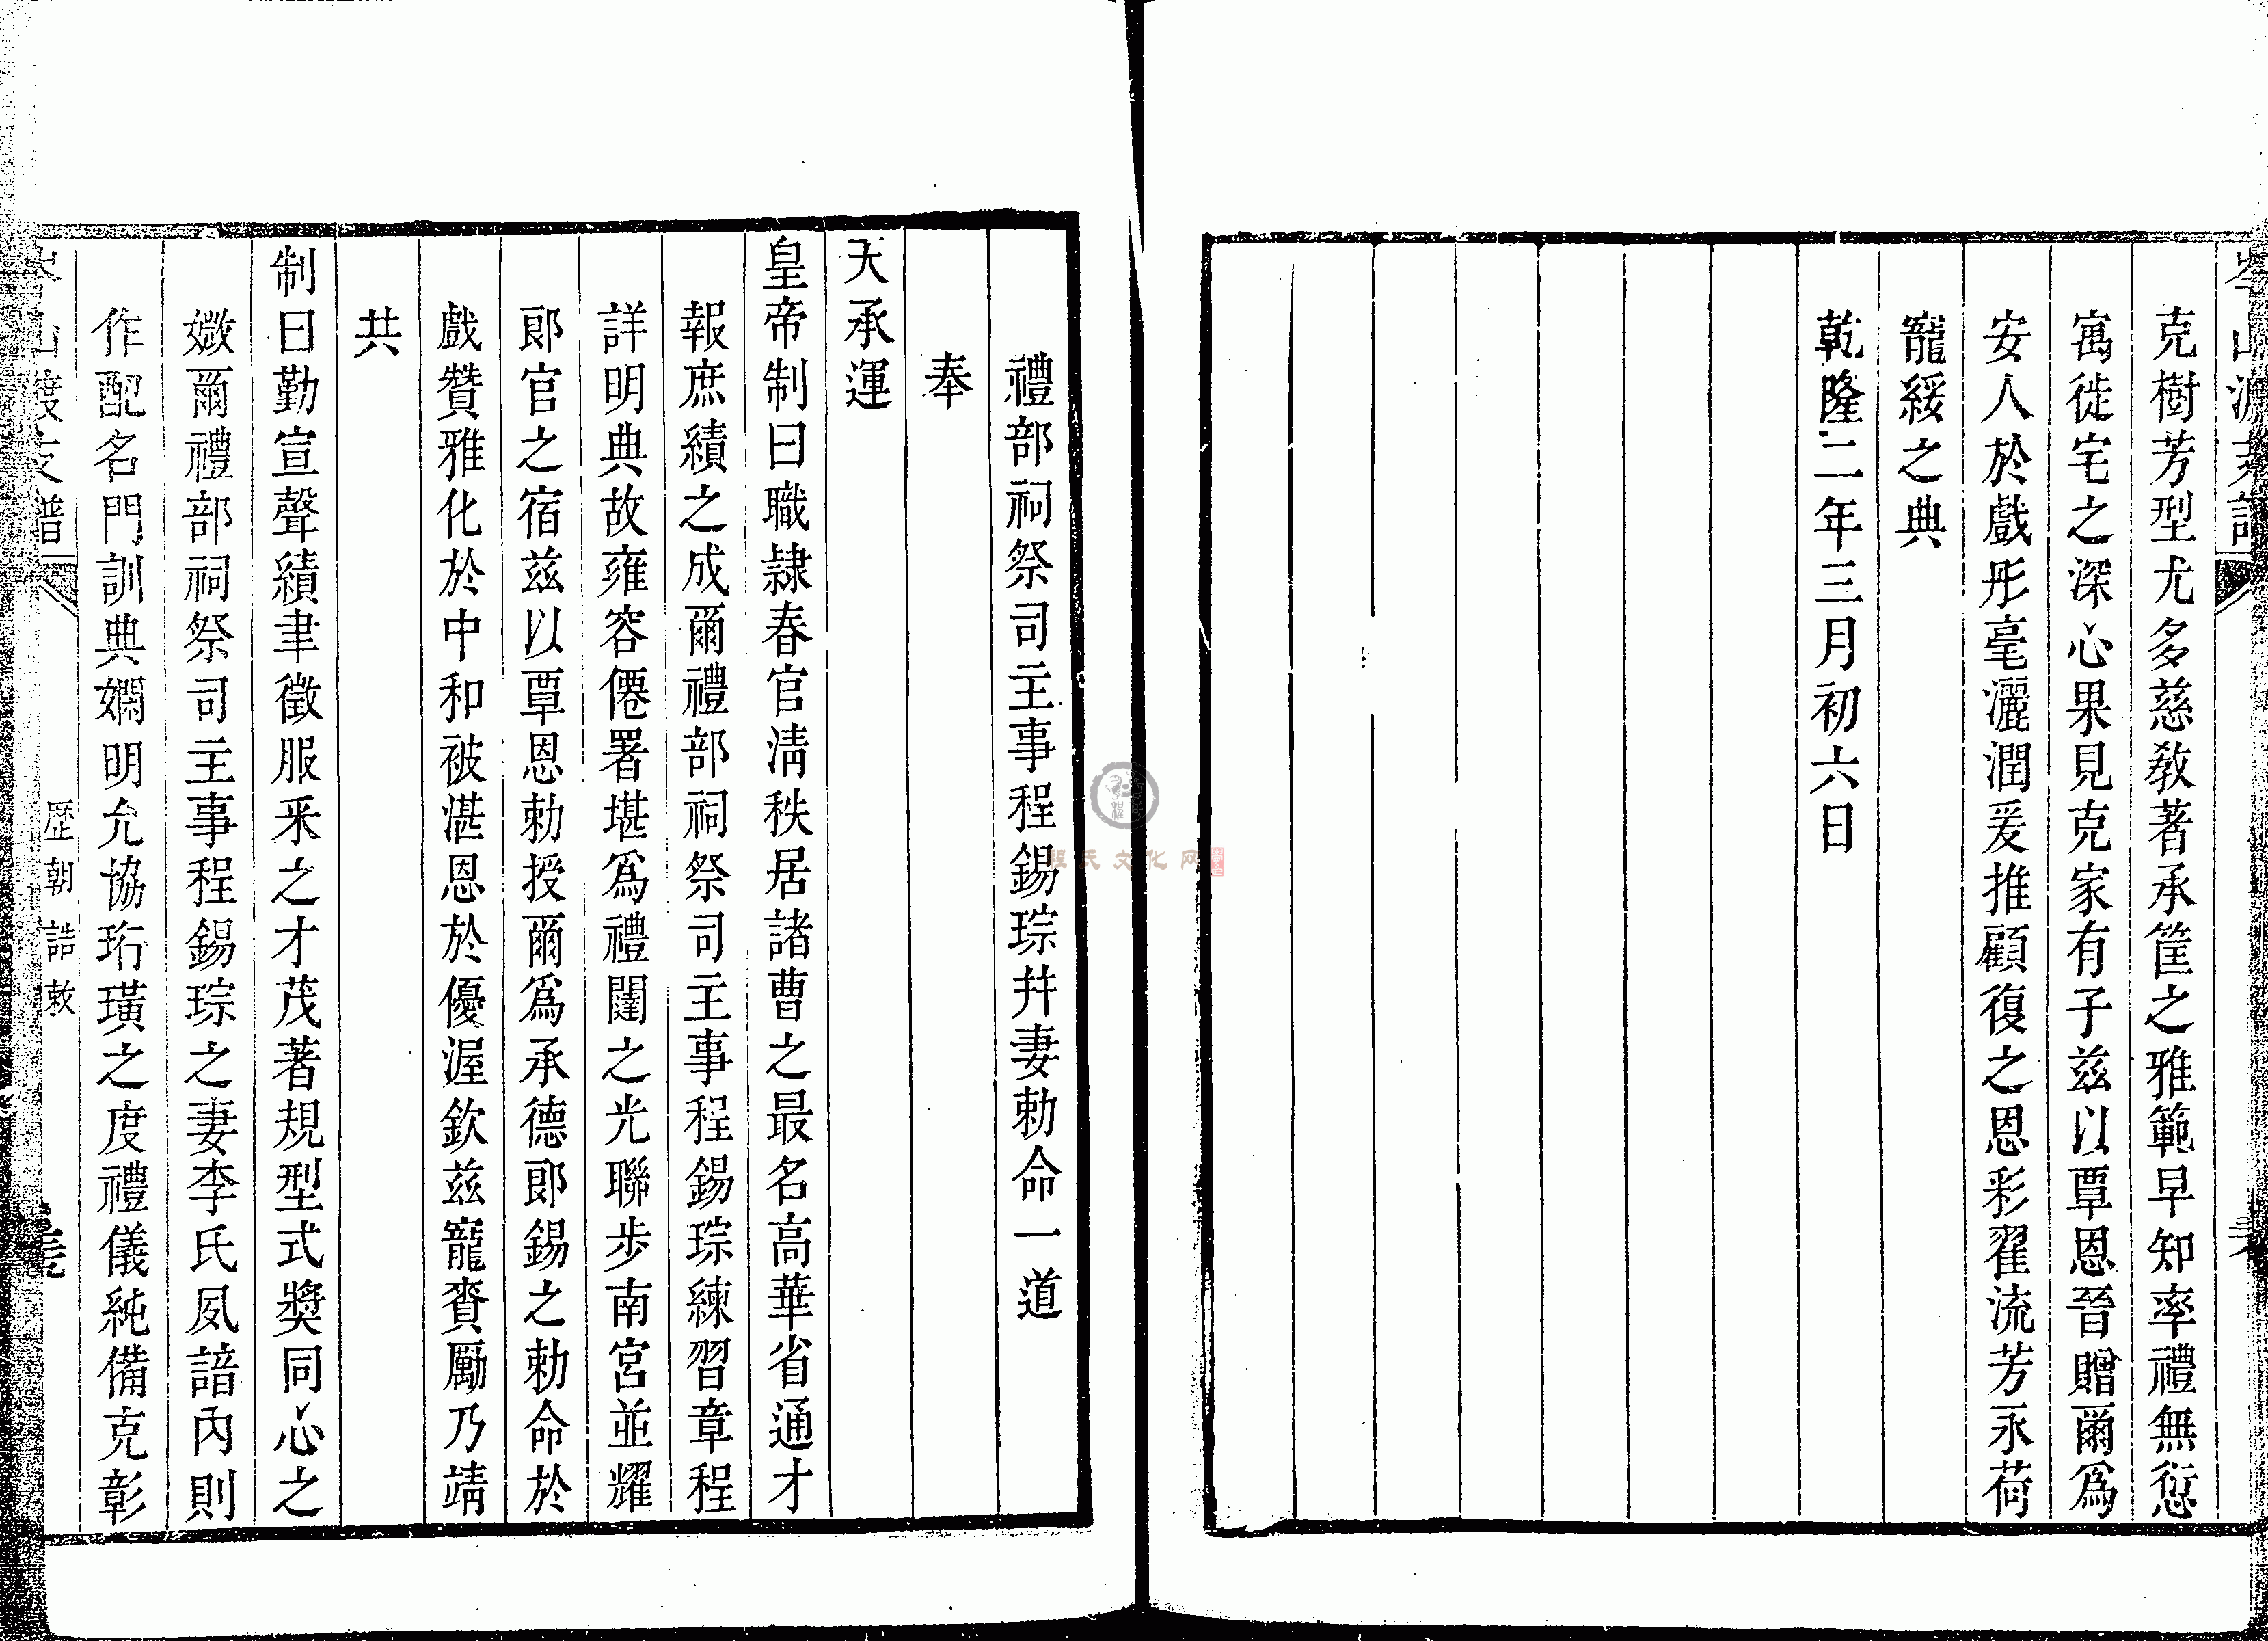 克樹芳型尤多慈教著承筐之雅範早知率禮無愆
寓徙宅之深心果見克家有子茲以覃恩晉贈爾爲
安人於戲彤毫灑潤爰推顧復之恩彩翟流芳永荷
寵綏之典
乾隆二年三月初六日
禮部祠祭司主事程錫琮幷妻勅命一道
奉
天承運
皇帝制曰職隷春官淸秩居諸曹之最名高華省通才
報庶績之成爾禮部祠祭司主事程錫琮練習章程
詳明典故雍容僊署堪爲禮闈之光聯步南宮並耀
郎官之宿茲以覃恩勅授爾爲承德郎錫之勅命於
戲贊雅化於中和被湛恩於優渥欽茲寵賚勵乃靖
共
制曰勤宣聲績聿徵服釆之才茂著規型式奬同心之
媺爾禮部祠祭司主事程錫琮之妻李氏夙諳內則
作配名門訓典嫻明允協珩璜之度禮儀純備克彰
歷朝誥敕
程氏文化网